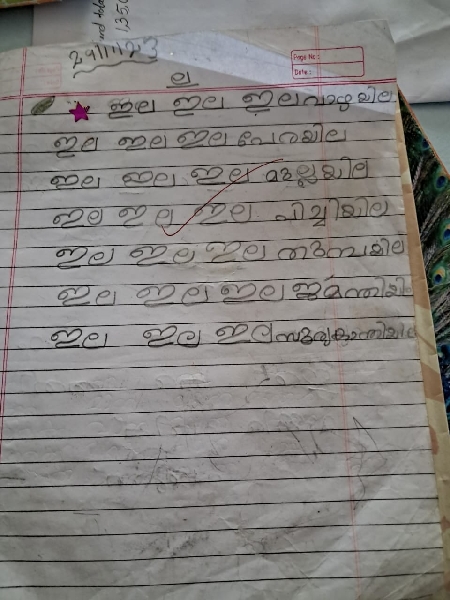 29/11/23
Page No :
Date :
ല
ഇല ഇല ഇല വാഴയില
ഇല ഇല ഇല പേരയില
ഇല ഇല ഇല മുല്ലയില
ഇല ഇല ഇല പിച്ചിയില
ഇല ഇല ഇല തുമ്പയില
ഇല ഇല ഇല ജമന്തിയില
ഇല ഇല ഇല സൂര്യകാന്തിയില